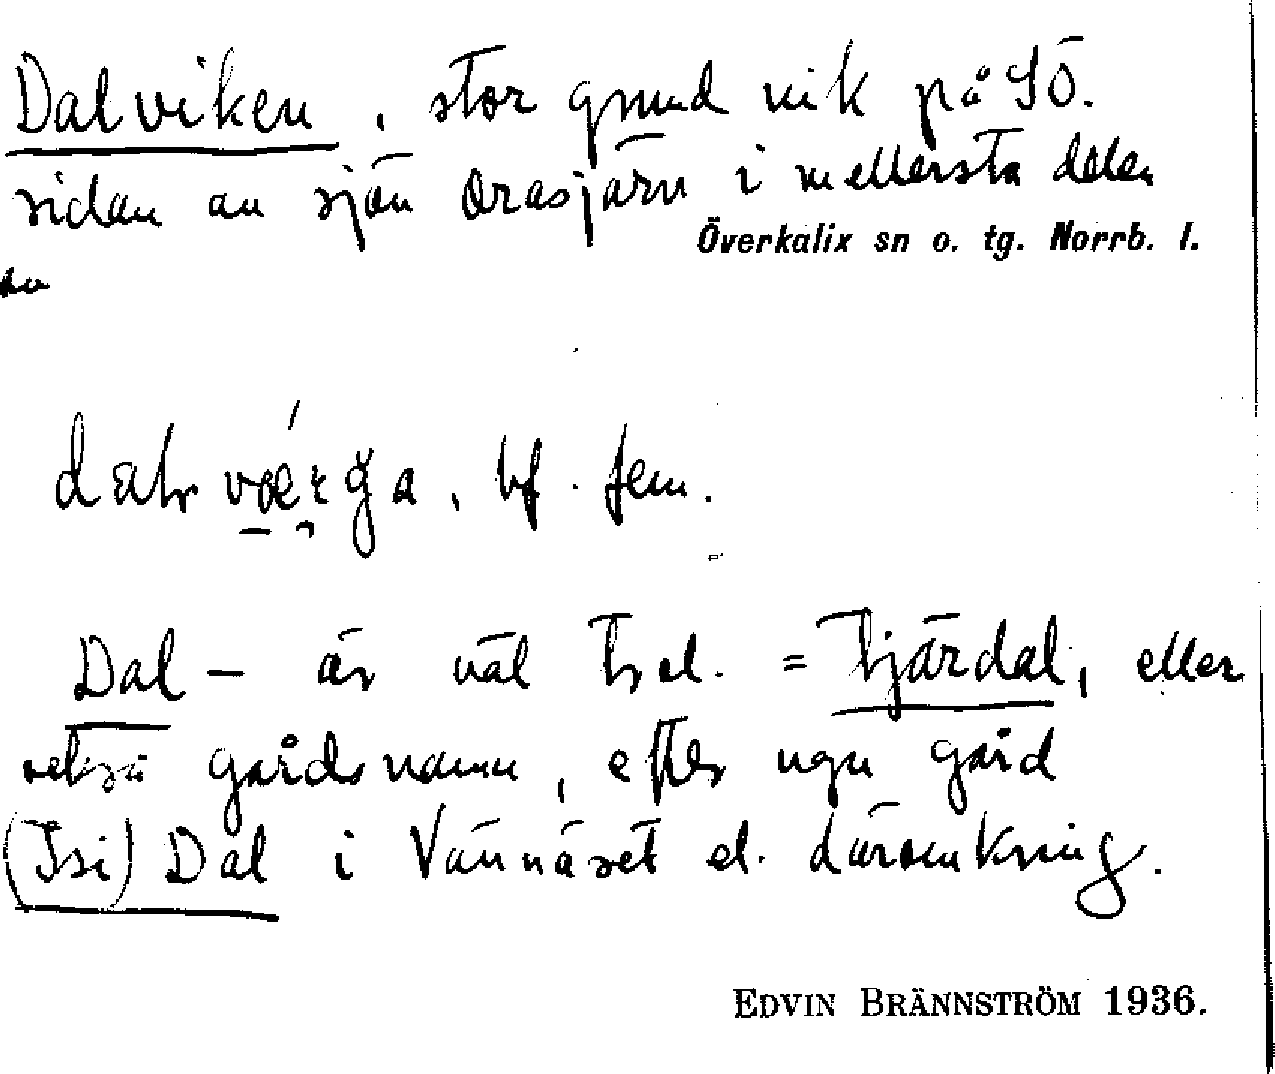 Dalviken, stor grund vik på SÖ.
sidan av sjön Orasjärv i mellersta delen
Överkalix sn o. tg. Norrb. l.
av
bf. fem.
Dal- är väl trol. = Tjärdal, eller
också gårdsnamn, efter ngn gård
(Isi) Dal i Vännäset el. däromkring.
EDVIN BRÄNNSTRÖM 1936.